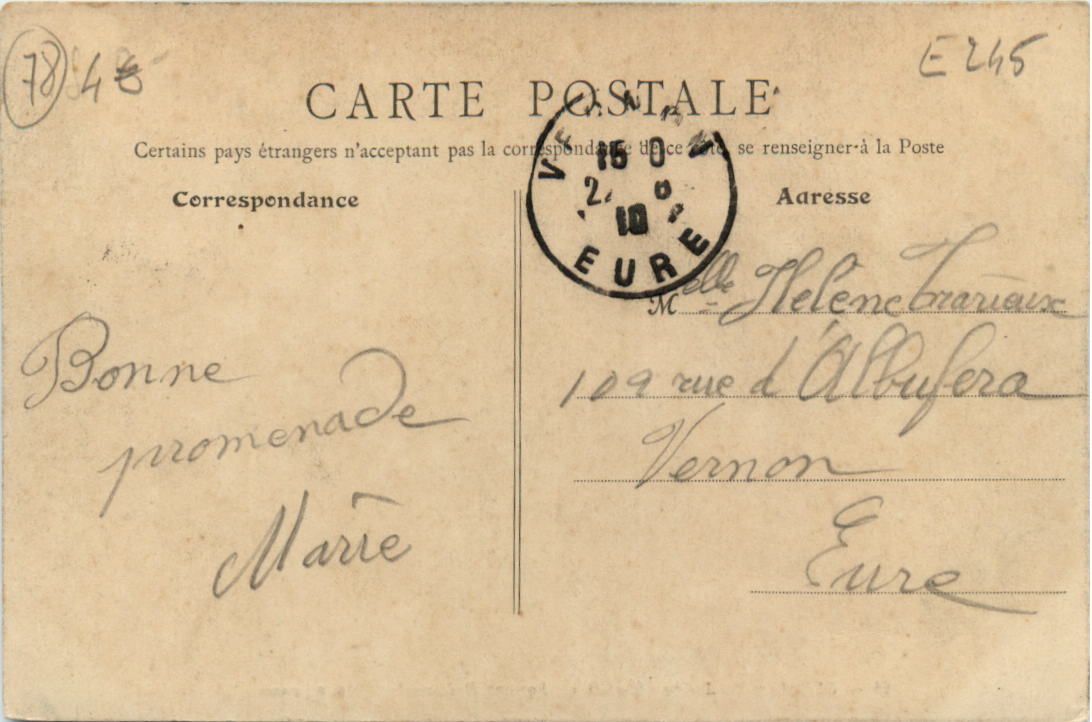 78 4
E 245
CARTE POSTALE
Certains pays étrangers n'acceptant pas la correspondance de ce côté, se renseigner à la Poste
Correspondance
Adresse
VERNON
15 0
10
EURE
Bonne
promenade
Marie
Melle Hélène Trarieux
109 rue d'Albufera
Vernon
Eure